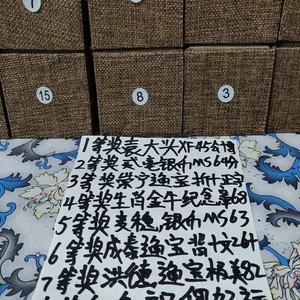 1
15
8
3
1等奖袁大头XF45合博
2等奖 银币MS64分
3等奖崇宁通宝折十正字
4等奖生肖金牛纪念章68
5等奖麦穗银币MS63
6等奖咸泰通宝背 26H
7等奖洪德通宝 美82